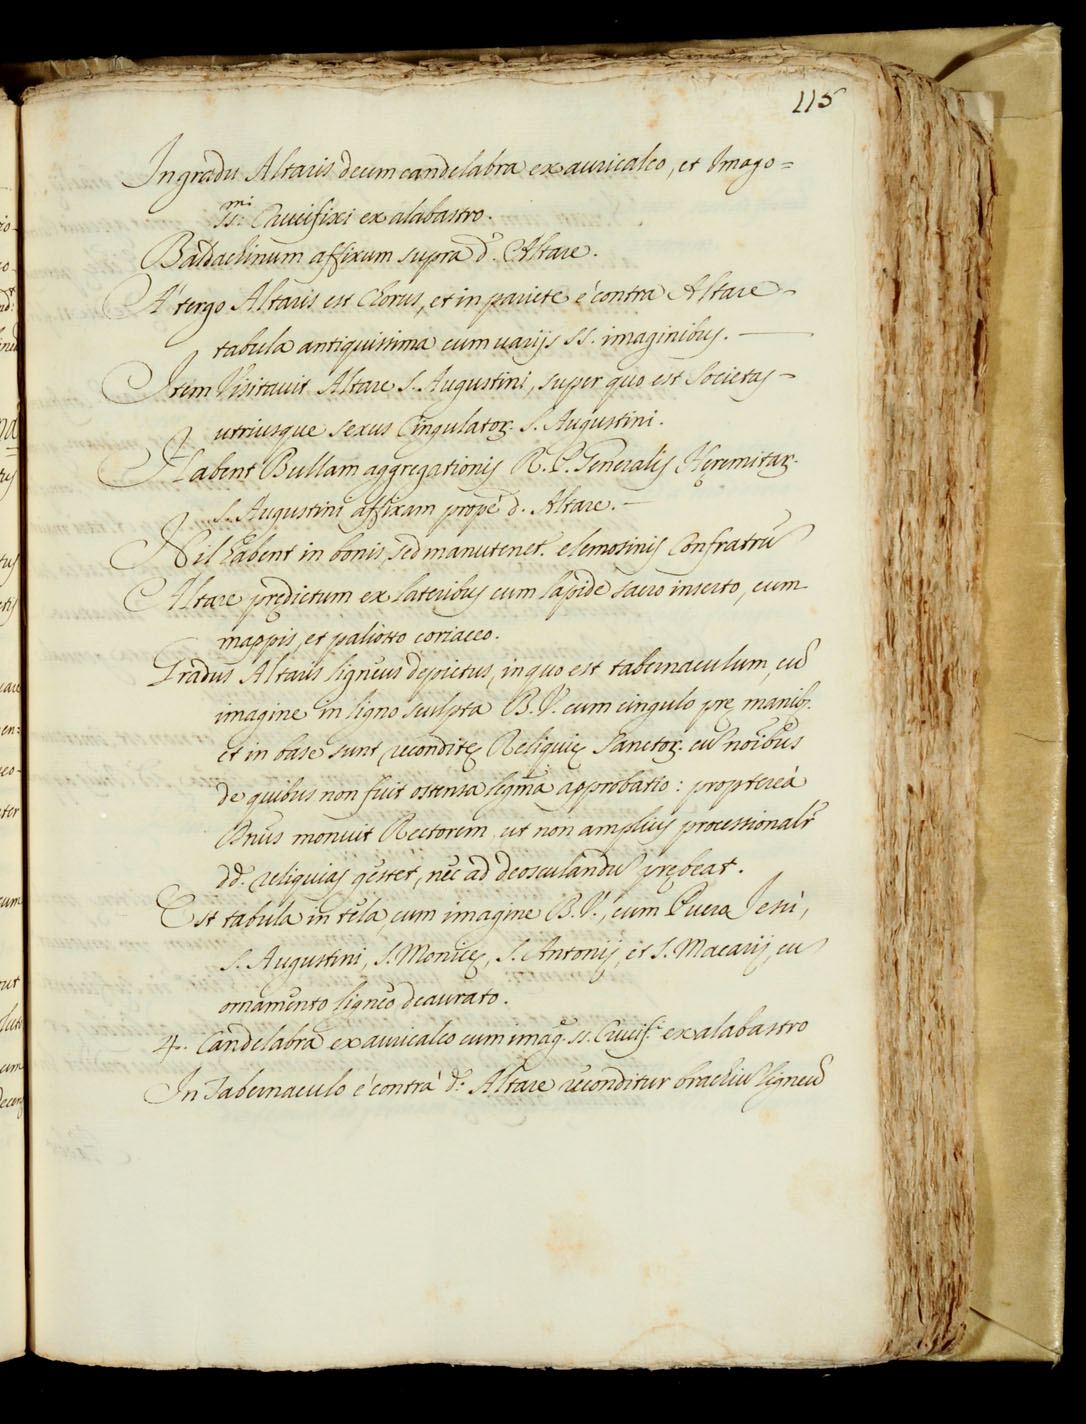 115
In gradu Altaris decem candelabra ex auricalco, et Imago=
SS:mi Crucifixi ex alabastro.
Baldachinum affixum supra d.º Altare.
A' tergo Altaris est Chorus, et in pariete è contra Altare
tabula antiquissima cum varijs SS. imaginibus.
Item Visitavit Altare S. Augustini, super quo est Societas
utriusque sexus Cingulatoꝝ. S. Augustini.
Habent Bullam aggregationis R. P. Generalis Hęremitaꝝ.
S. Augustini affixam propè d. Altare.
Nil habent in bonis, sed manutenet.r elemosinis Confratrũ
Altare prędictum ex lateribus cum lapide sacro inserto, cum
mappis, et paliotto coriaceo.
Gradus Altaris ligneus depictus, in quo est tabernaculum, cũ
imagine in ligno sculpta B. V. cum cingulo prę manib.
et in base sunt reconditę Reliquię Sanctoꝝ. cũ noĩbus
de quibus non fuit ostensa legĩma approbatio: propterèa
Dñus monuit Rectorem, ut non amplius processionalr̃
dd. reliquias gestet, nec ad deosculandũ prębeat.
Est tabula in tela, cum imagine B. V., cum Puero Jesù,
S. Augustini, S. Monicę, S. Antonij, et S. Macarij, cũ
ornamento ligneo deaurato.
4. Candelabra ex auricalco cum imag. SS. Crucif.i ex alabastro
In Tabernaculo è contrà d.º Altare reconditur brachiũ ligneũ